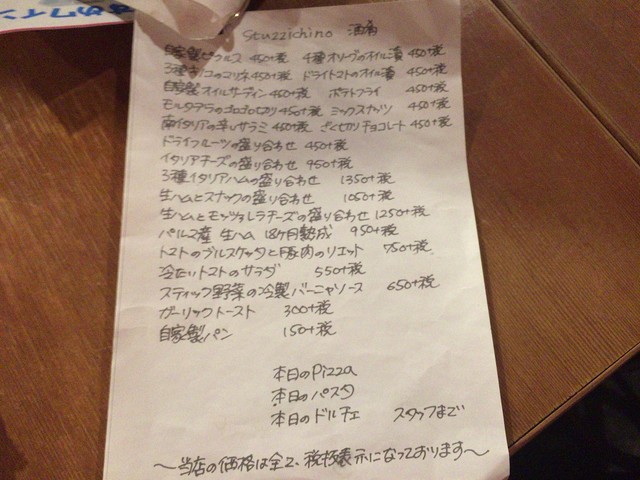 Stuzzichino 酒肴
自家製ピクルス 450+税 4種オリーブのオイル漬 450+税
3種キノコのマリネ 450+税 ドライトマトのオイル漬 450+税
自家製オイルサーディン 450+税 ポテトフライ 450+税
モルタデラのゴロゴロ切り 450+税 ミックスナッツ 450+税
南イタリアの辛いサラミ 450+税 ざく切りチョコレート 450+税
ドライフルーツの盛り合わせ 450+税
イタリアチーズの盛り合わせ 950+税
3種イタリアハムの盛り合わせ 1350+税
生ハムとスナックの盛り合わせ 1050+税
生ハムとモッツァレラチーズの盛り合わせ 1250+税
パルマ産 生ハム 18ヶ月熟成 950+税
トマトのブルスケッタと豚肉のリエット 750+税
冷たいトマトのサラダ 550+税
スティック野菜の冷製バーニャソース 650+税
ガーリックトースト 300+税
自家製パン 150+税
本日のPizza
本日のパスタ
本日のドルチェ スタッフまで
〜当店の価格は全て、税抜表示になっております〜